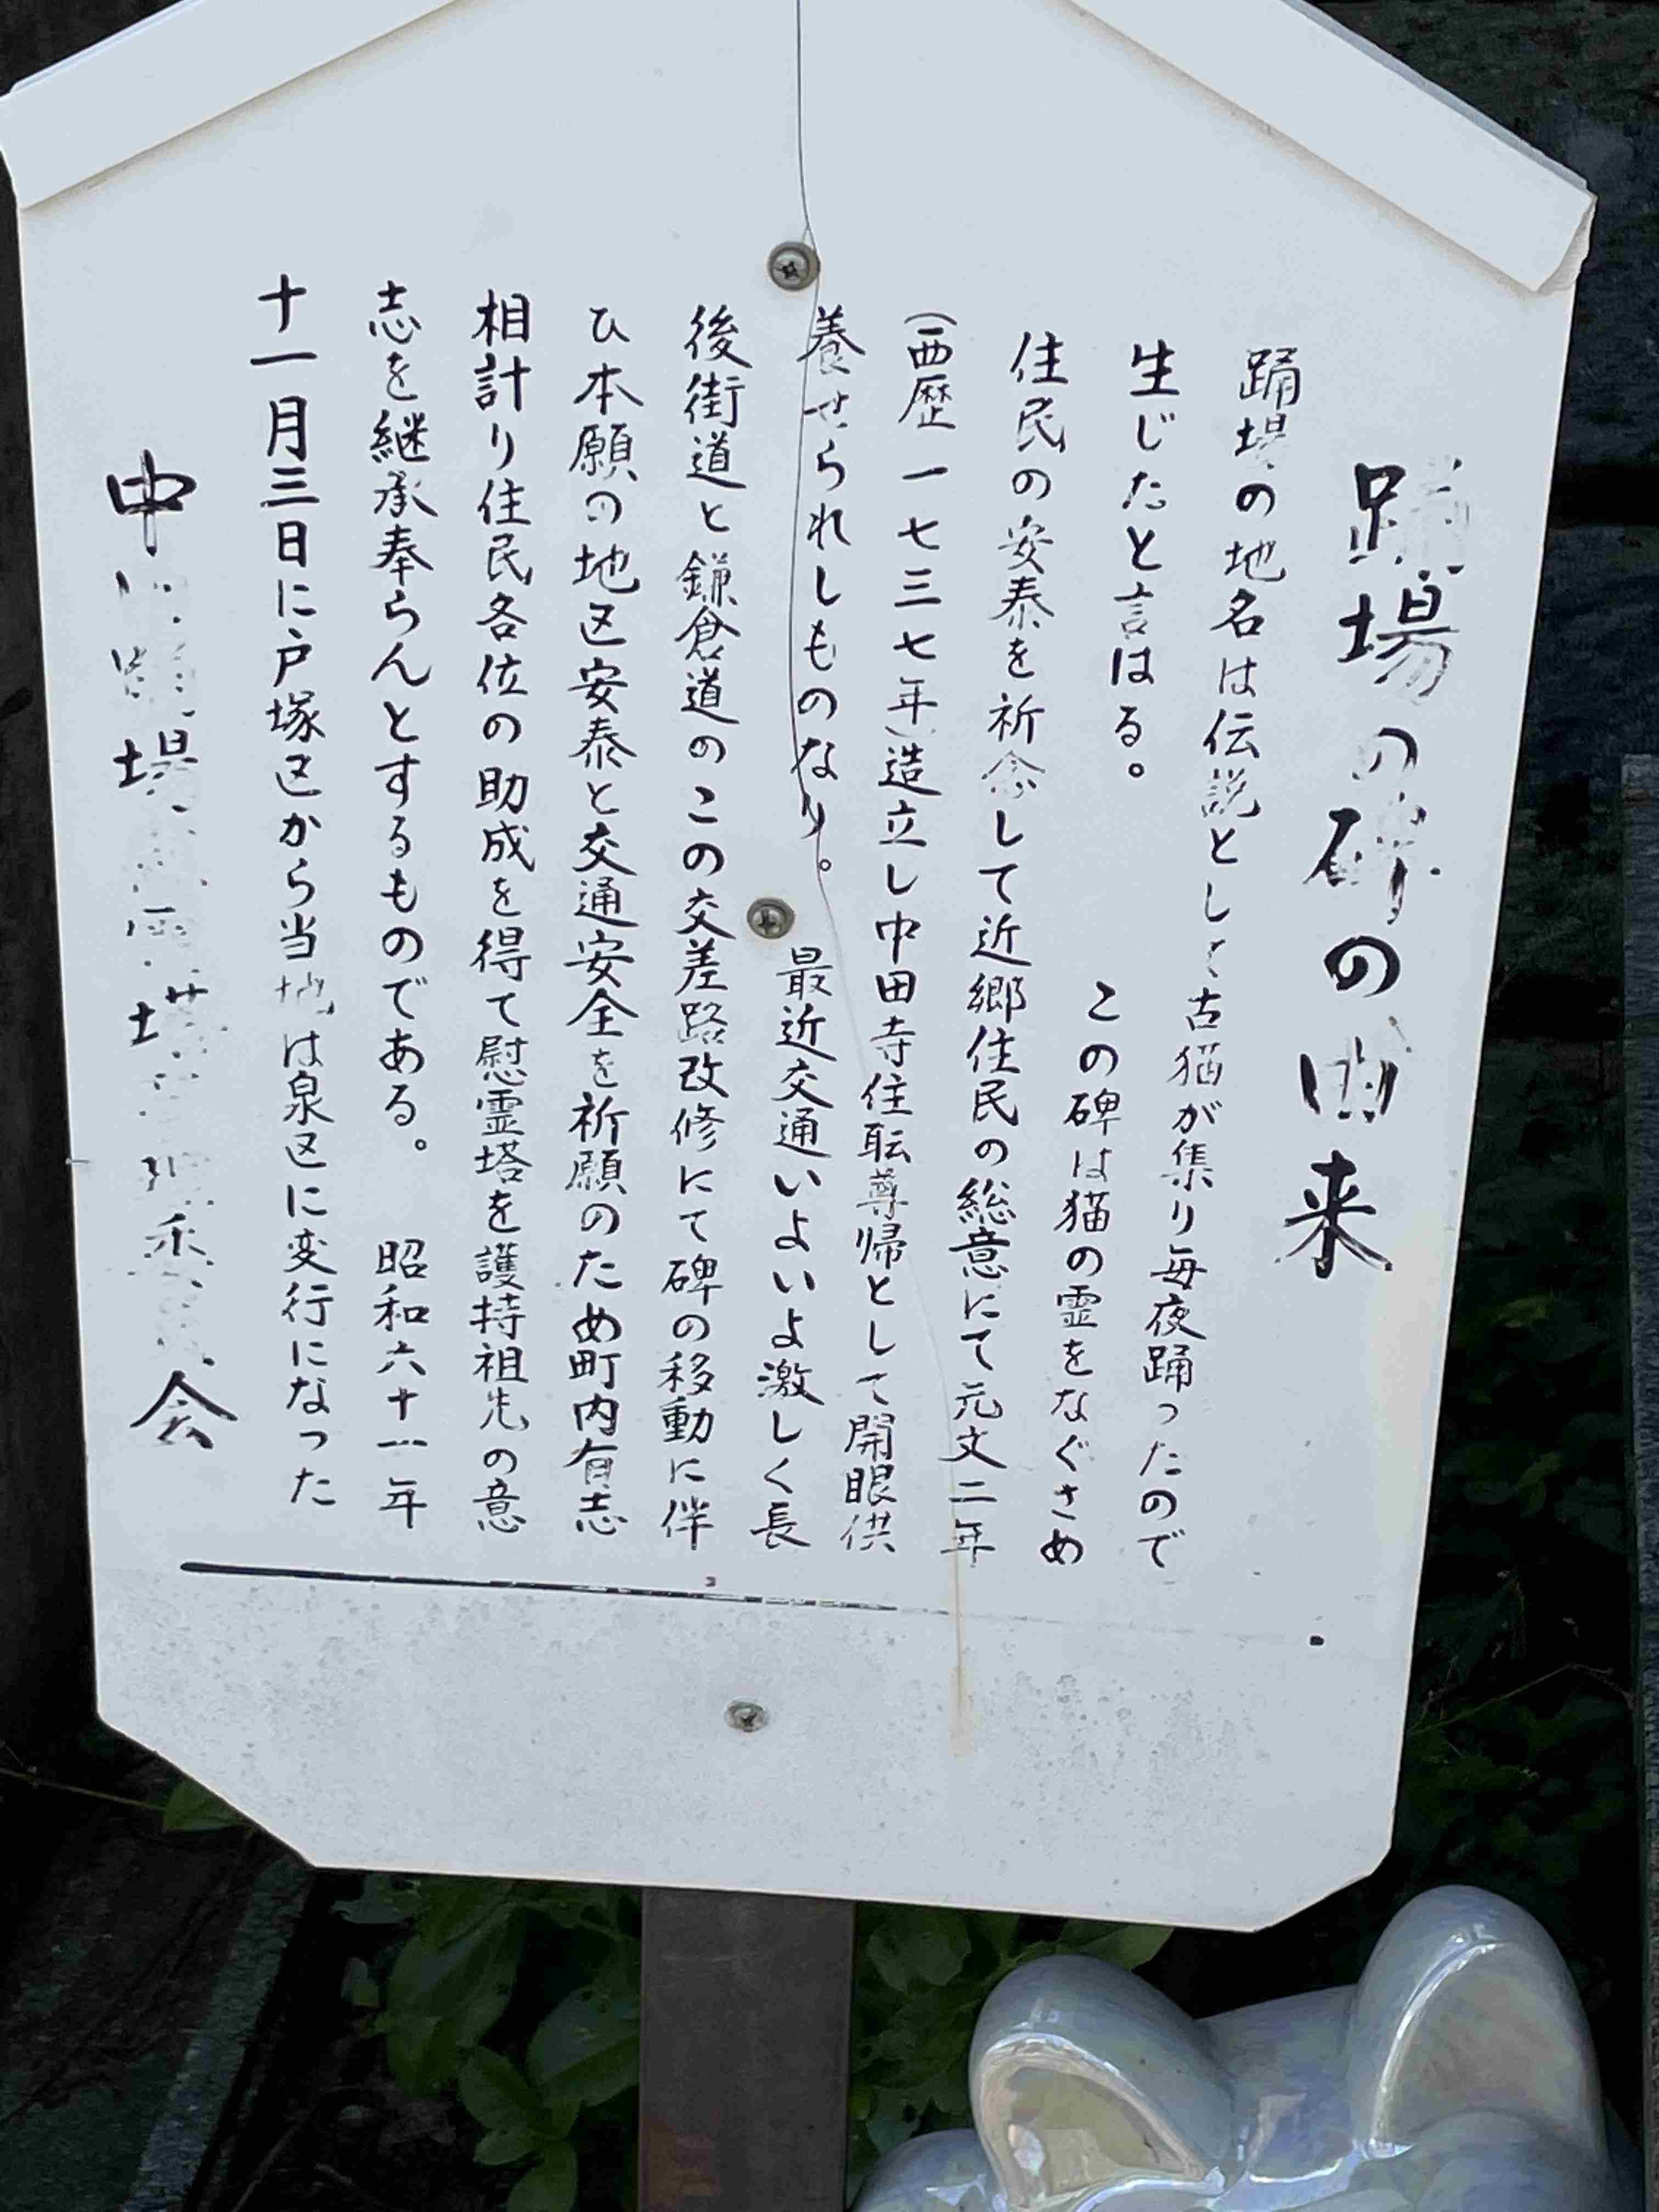 踊場の碑の由来
踊場の地名は伝説として古猫が集り毎夜踊ったので
生じたと言はる。　この碑は猫の霊をなぐさめ
住民の安泰を祈念して近郷住民の総意にて元文二年
(西歴一七三七年)造立し中田寺住転尊帰として開眼供
養せられしものなり。　最近交通いよいよ激しく長
後街道と鎌倉道のこの交差路改修にて碑の移動に伴
ひ本願の地区安泰と交通安全を祈願のため町内有志
相計り住民各位の助成を得て慰霊塔を護持祖先の意
志を継承奉らんとするものである。　昭和六十一年
十一月三日に戸塚区から当地は泉区に変行になった
中 場 会